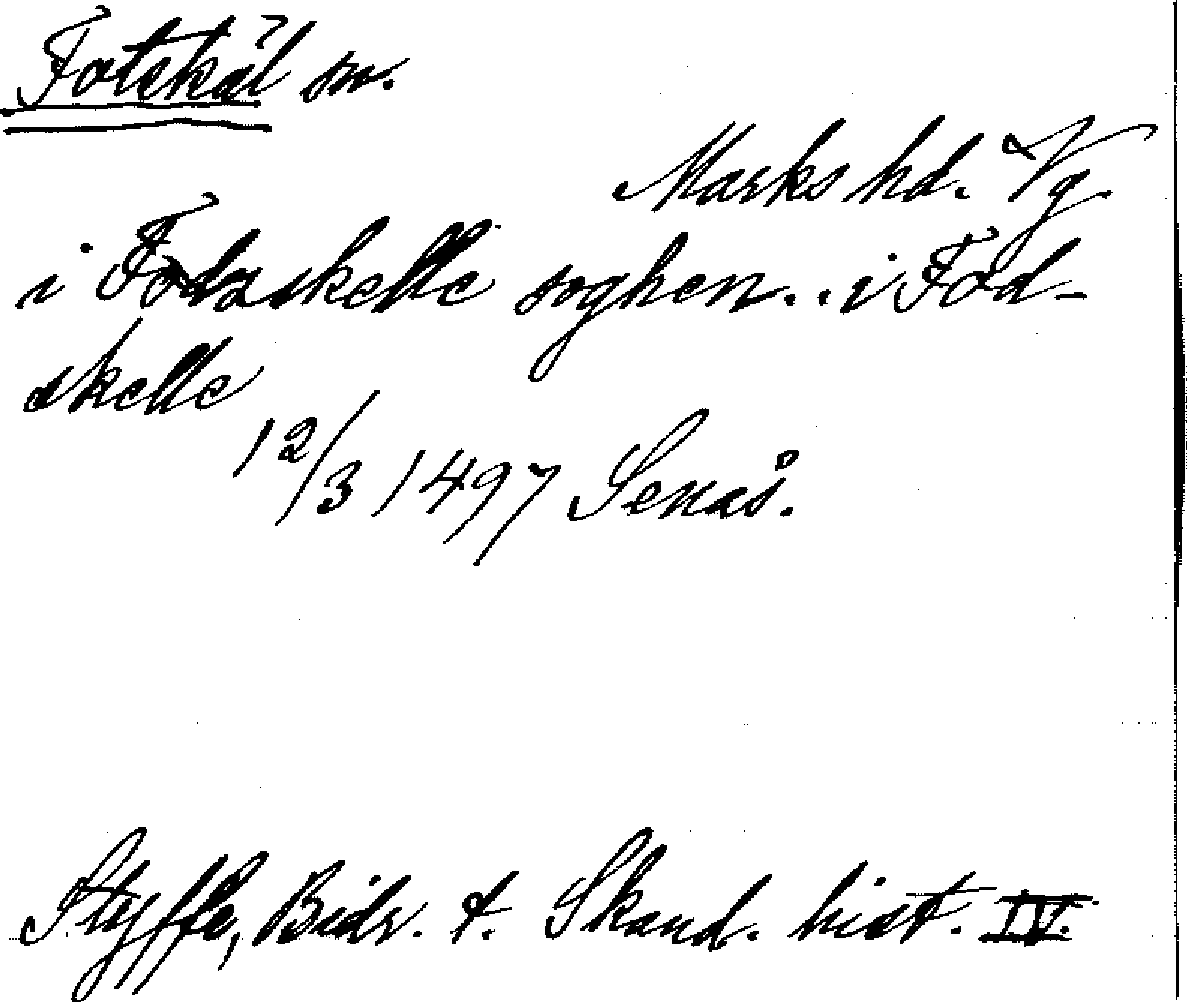 Fotskäl sn.
Marks hd. Vg
i Fodzskelle soghen... i Fod-
skelle
12/3 1497 Senås.
Styffe, Bidr. t. Skand. hist. IV.